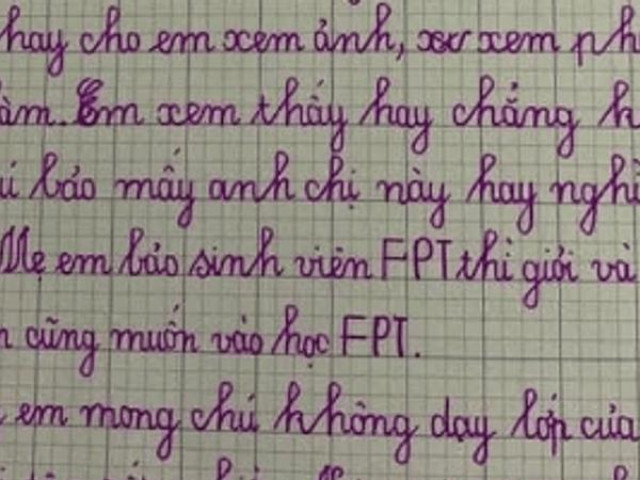 hay cho em xem ảnh, xem ph
àm. Em xem thấy hay chẳng h
ú bảo mấy anh chị này hay nghi
Mẹ em bảo sinh viên FPT thì giỏi và
n cũng muốn vào học FPT.
em mong chú không dạy lớp của